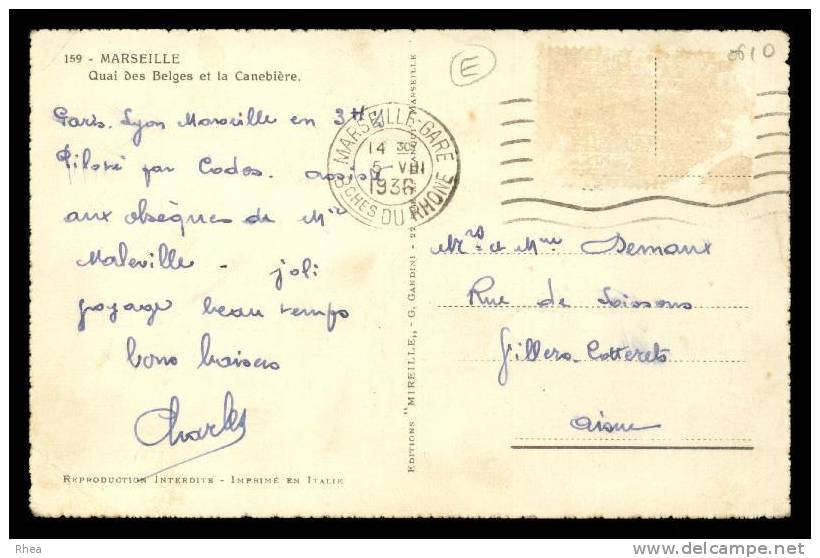 159 - MARSEILLE
Quai des Belges et la Canebière.
Paris. Lyon Marseille en 3H 1/4
Piloté par Codos. assisté
aux obsèques de Mr
Maleville - joli
voyage beau temps
bons baisers
Charles
REPRODUCTION INTERDITE - IMPRIMÉ EN ITALIE
EDITIONS "MIREILLE" - G. GANDINI - MARSEILLE
MARSEILLE-GARE
14 30
5 - VIII
1936
BCHES DU RHONE
E
610
Mr et Mme Demaux
Rue de Soissons
Villers-Cotterets
Aisne
Rhea
delcampe.net